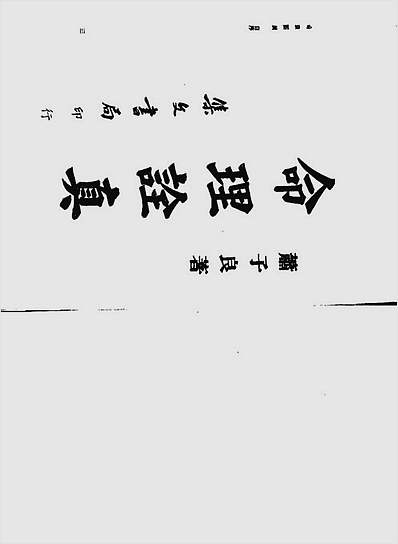 蕭子良著
命理詮真
集文書局印行